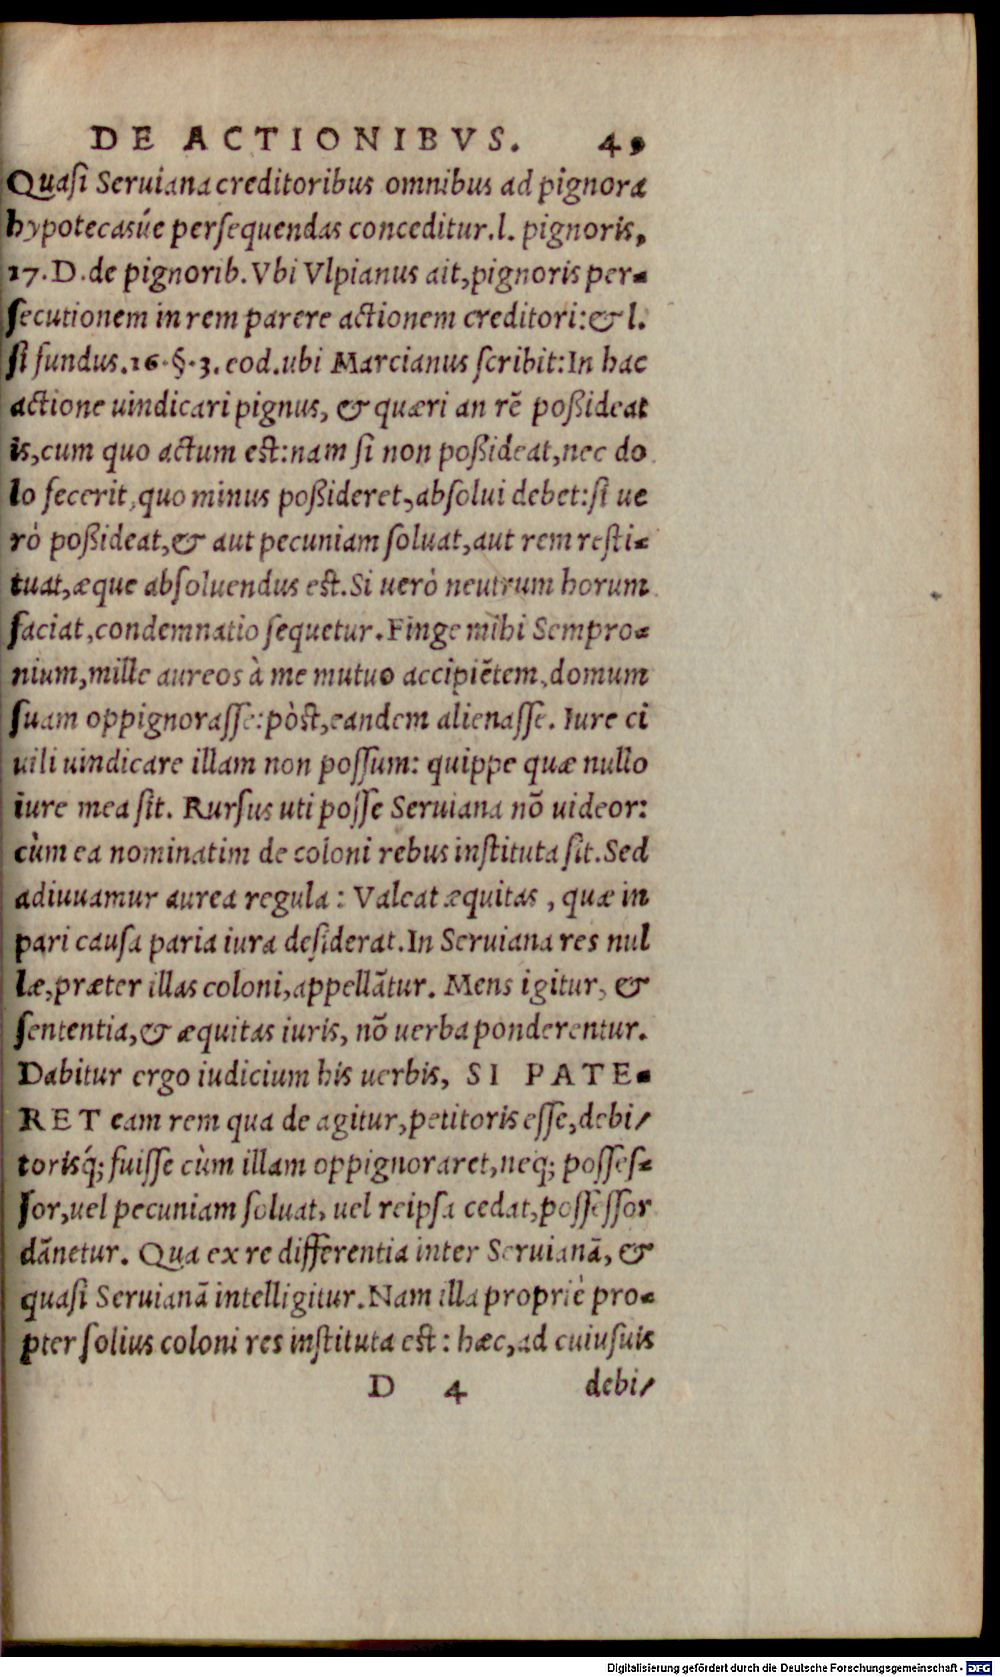 DE ACTIONIBVS. 49
Quasi Seruiana creditoribus omnibus ad pignora
hypotecasúe persequendas conceditur. l. pignoris,
17. D. de pignorib. Vbi Vlpianus ait, pignoris per-
secutionem in rem parere actionem creditori: & l.
si fundus. 16. §. 3. eod. ubi Marcianus scribit: In hac
actione uindicari pignus, & quæri an rē poßideat
is, cum quo actum est: nam si non poßideat, nec do
lo fecerit, quo minus poßideret, absolui debet: si ue
rò poßideat, & aut pecuniam soluat, aut rem resti-
tuat, æque absoluendus est. Si uerò neutrum horum
faciat, condemnatio sequetur. Finge mihi Sempro-
nium, mille aureos à me mutuo accipiētem, domum
suam oppignorasse: pòst, eandem alienasse. Iure ci
uili uindicare illam non possum: quippe quæ nullo
iure mea sit. Rursus uti posse Seruiana nō uideor:
cùm ea nominatim de coloni rebus instituta sit. Sed
adiuuamur aurea regula: Valeat æquitas, quæ in
pari causa paria iura desiderat. In Seruiana res nul
læ, præter illas coloni, appellātur. Mens igitur, &
sententia, & æquitas iuris, nō uerba ponderentur.
Dabitur ergo iudicium his uerbis, SI PATE-
RET eam rem qua de agitur, petitoris esse, debi/
torisq́; fuisse cùm illam oppignoraret, neq; posses-
sor, uel pecuniam soluat, uel reipsa cedat, possessor
dānetur. Qua ex re differentia inter Seruianā, &
quasi Seruianā intelligitur. Nam illa propriè pro-
pter solius coloni res instituta est: hæc, ad cuiusuis
D 4 debi/
Digitalisierung gefördert durch die Deutsche Forschungsgemeinschaft - DFG